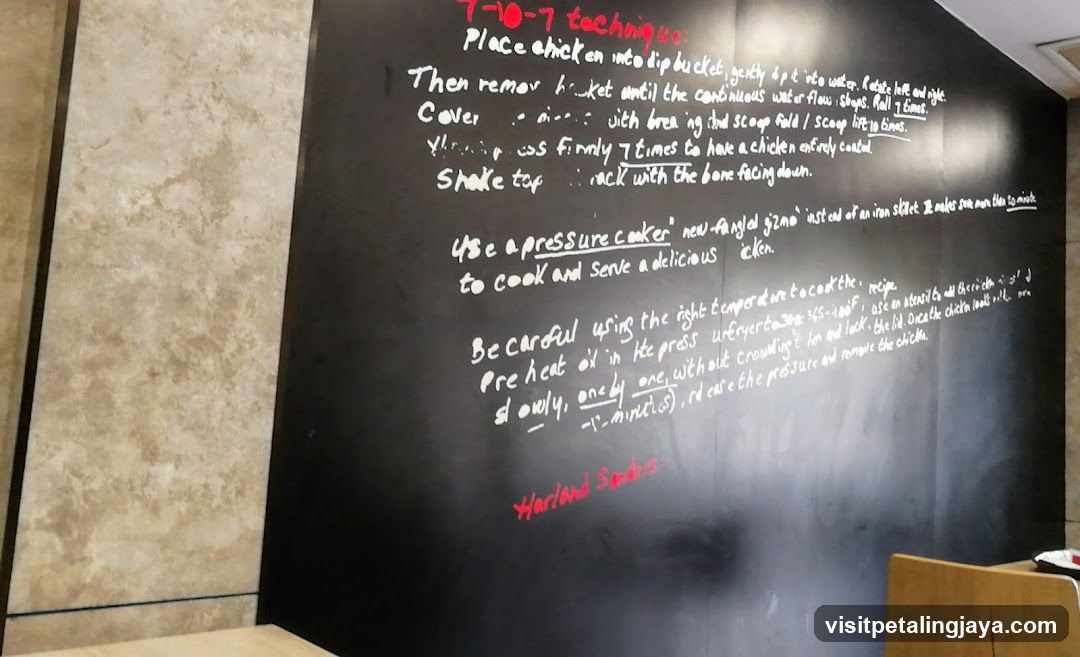 7-10-7 technique:
Place chicken into dip bucket, gently dip it into water. Rotate left and right.
Then remov basket until the continuous water flow stops. Roll 7 times.
Cover with breading and scoop fold / scoop lift 10 times.
firmly 7 times to have a chicken entirely coated.
Shake tap rack with the bone facing down.
Use a pressure cooker "new-fangled gizmo" instead of an iron skillet. It makes sure more than 20 minute
to cook and serve a delicious icken.
Be careful using the right temperature to cook the recipe.
Preheat oil in the press urefryer to 365-400F, use an utensil to add the chicken
slowly, one by one, without crowding them and lock the lid. Once the chicken looks
minute(s), release the pressure and remove the chicken.
Harland Sanders
visitpetalingjaya.com